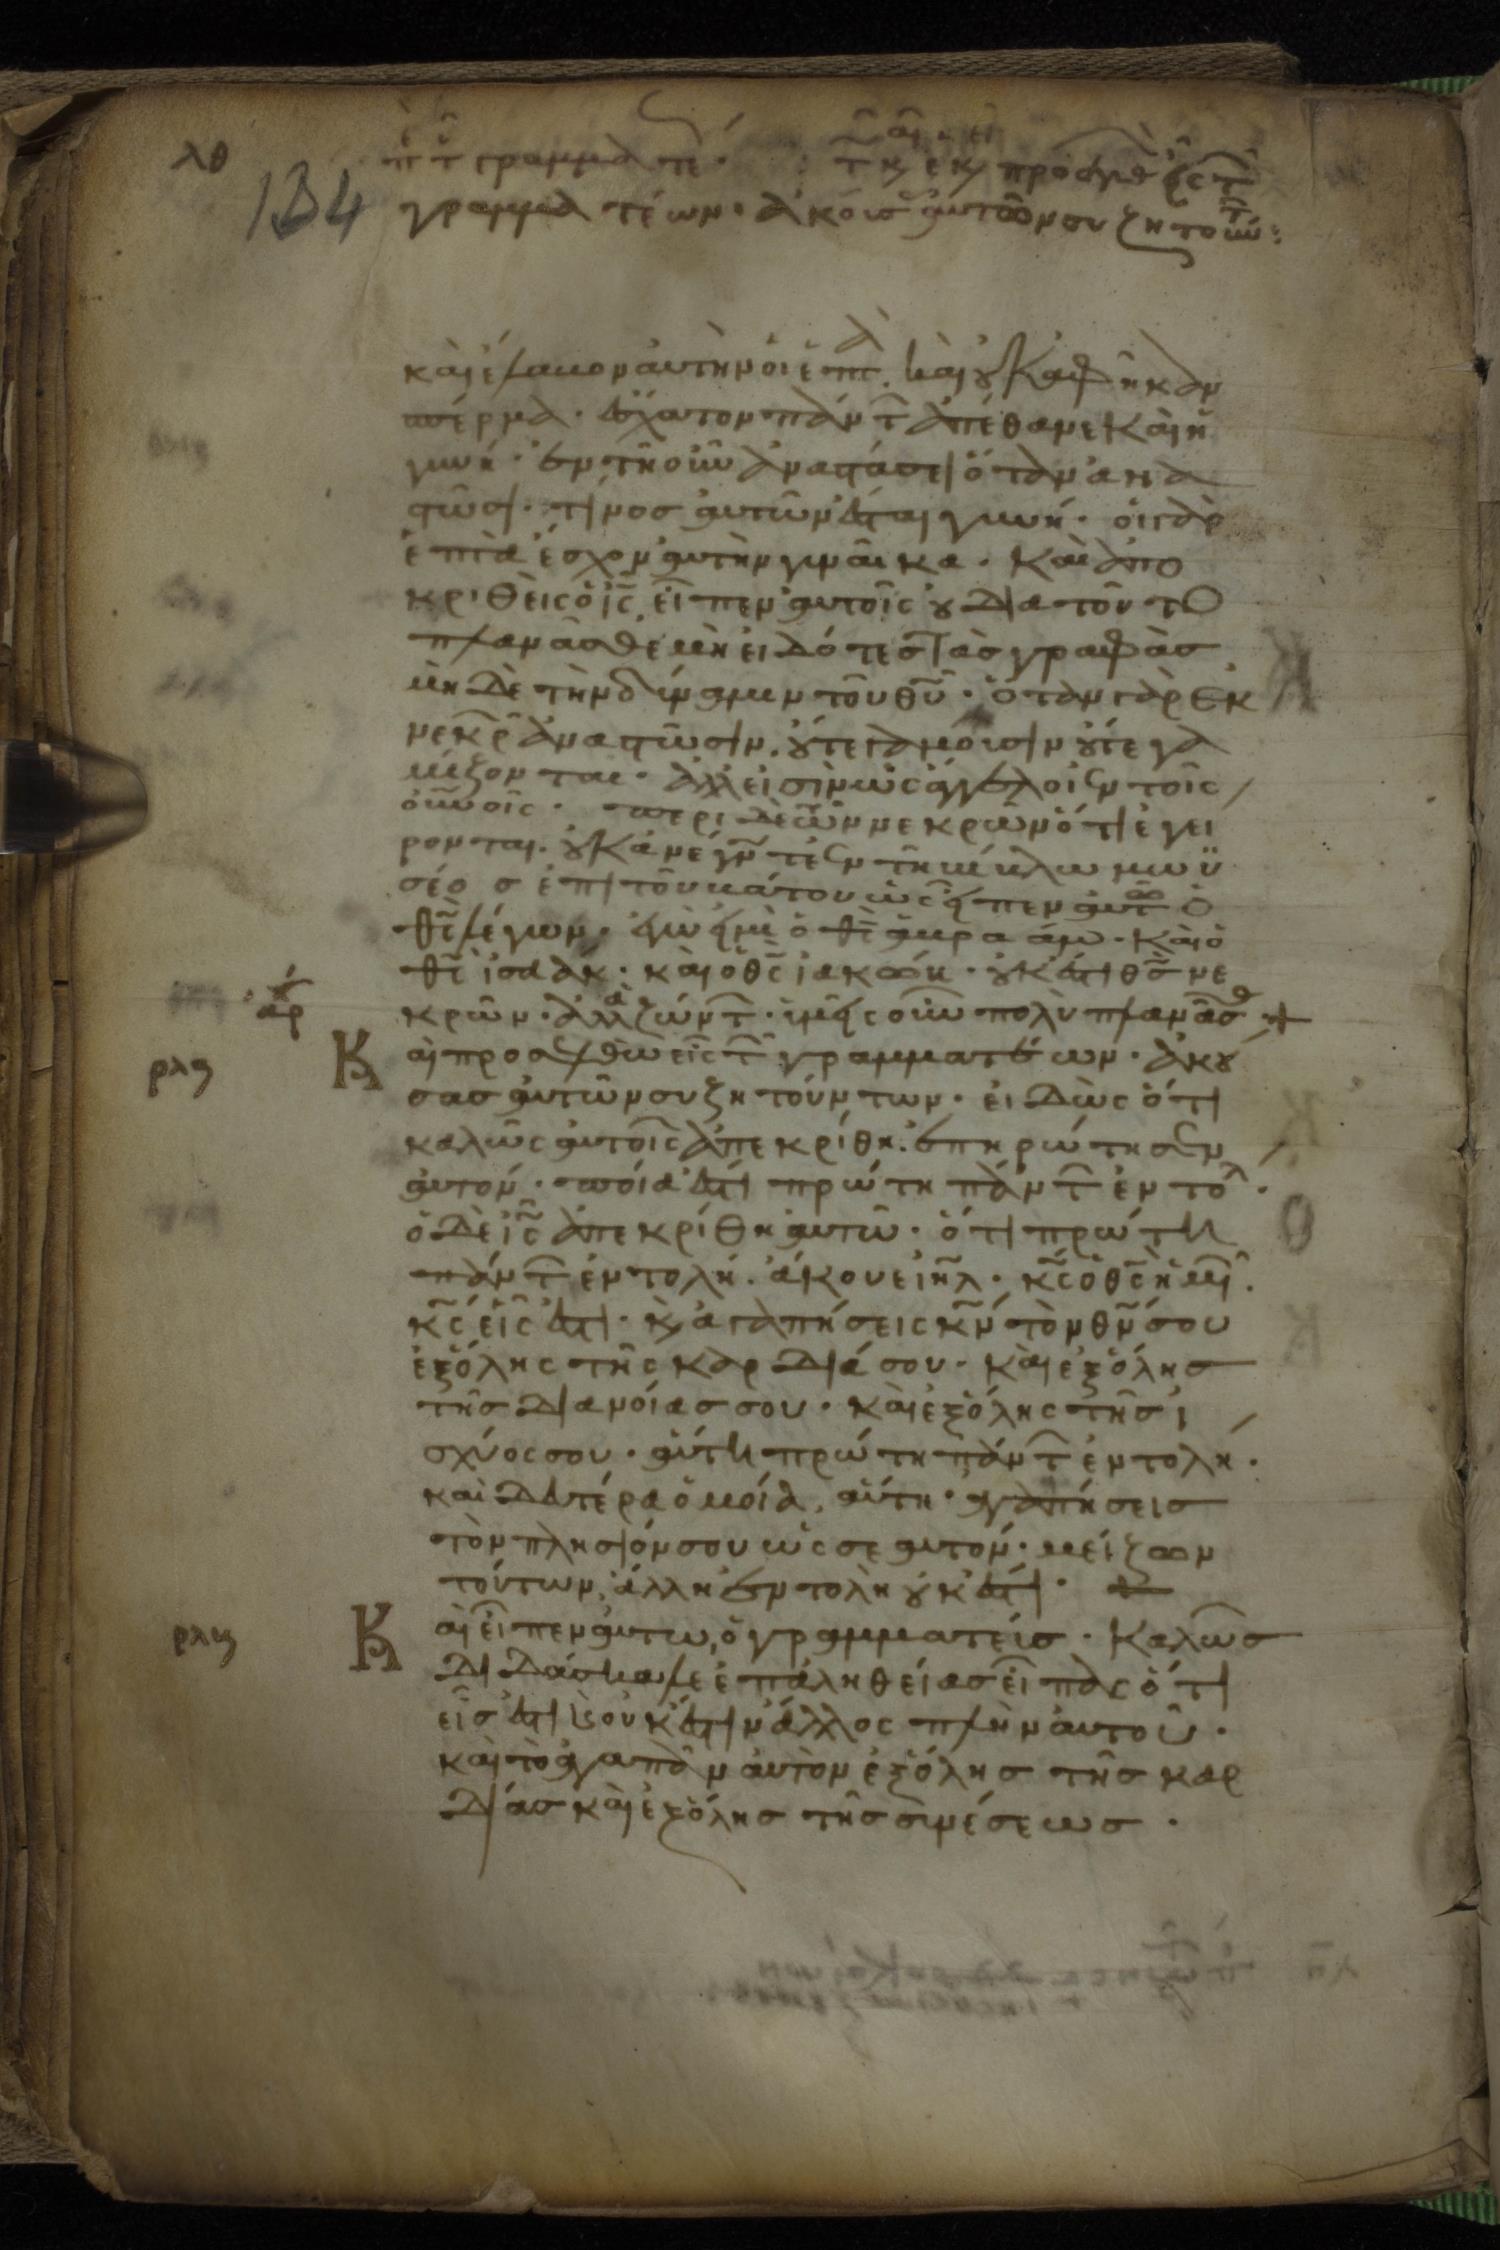 λθ
γραμματέων· ἀκούσ αὐτῶν συζητούν
134
καὶ ἔλαβον αὐτὴν οἱ ἑπτὰ. καὶ οὐκ ἀφῆκαν
σπέρμα· ἔσχατον πάντ ἀπέθανε καὶ ἡ
γυνή· ἐν τῆ οὖν ἀναστάσει ὅταν ἀνα
στῶσι· τίνοσ αὐτῶν ἔσται γυνή· οἱ γὰρ
ἑπτὰ ἔσχον αὐτὴν γυναῖκα· Καὶ ἀπο
κριθεὶς ὁ ις εἶπεν αὐτοῖς οὐ διὰ τοῦτο
πλανᾶσθε μὴ εἰδότεσ τὰσ γραφὰσ
μὴ δὲ τὴν δύναμιν τοῦ θυ· ὅταν γὰρ ἐκ
νεκρ ἀναστῶσιν. οὔτε γαμοῦσιν οὔτε γα
μίζονται· ἀλλ εἰσὶν ὡς ἄγγελοι ἐν τοῖς
οὐνοῖς· περι δὲ τῶν νεκρῶν ὅτι ἐγεί
ρονται. οὐκ ἀνέγντε ἐν τῆ βίβλω μωϋ
σέοσ ἐπὶ τοῦ βάτου ὡς εἶπεν αὐτῶ ὁ
θς λέγων· ἐγὼ εἰμὶ ὁ θς ἀβραάμ· καὶ ὁ
θς ἰσαάκ· καὶ ὁ θς ἰακώβ· οὐκ ἔστι θς νε
κρῶν· ἀλλὰ ζώντ· ὑμεῖς οὖν πολὺ πλανᾶσθ +
αρ
ρλς
Καὶ προσελθὼν εἷς τ γραμματέων· ἀκού
σασ αὐτῶν συζητούντων· εἰδὼς ὅτι
καλῶς αὐτοῖς ἀπεκρίθη. ἐπηρώτησεν
αὐτόν· ποία ἔστι πρώτη πάντ ἐντολ·
ὁ δὲ ις ἀπεκρίθη αὐτῶ· ὅτι πρώτη
πάντ ἐντολή· ἄκουε ιηλ· κς ὁ θς ἡμ·
κς εἷς ἔστι· κ ἀγαπήσεις κν τὸν θν σου
ἐξ ὅλης τῆς καρδία σου· καὶ ἐξ ὅλησ
τῆσ διανοίασ σου· καὶ ἐξ ὅλης τῆσ ἰ
σχύος σου· αὕτη πρώτη πάντ ἐντολή·
καὶ δευτέρα ὁμοία, αὕτη· ἀγαπήσεισ
τὸν πλησίον σου ὡς σε αυτόν· μείζων
τούτων, ἄλλη ἐντολὴ οὐκ ἔστι· +
ρλζ
Καὶ εἶπεν αὐτω, ὁ γραμματεύσ· Καλῶσ
διδάσκαλε ἐπ ἀληθείασ εἶπας ὅτι
εἷσ ἔστι κ οὐκ ἔστιν ἄλλος πλὴν αὐτοῦ·
καὶ τὸ ἀγαπᾶν αὐτὸν ἐξ ὅλησ τῆσ καρ
δίασ καὶ ἐξ ὅλησ τῆσ συνέσεωσ·